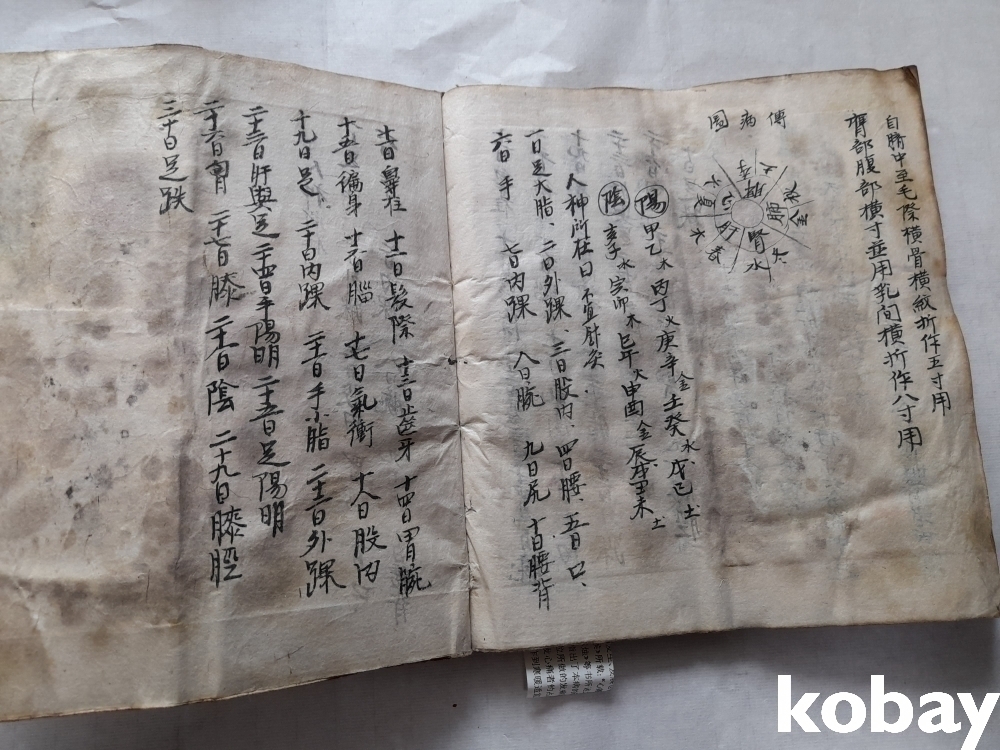 自臍中至毛際横骨横紋折作五寸用
臍部腹部横寸並用乳間横折作八寸用
傳病圖
秋
肺
金
冬
腎
水
春
肝
木
夏
心
火
脾
土
陽 甲乙木 丙丁火 庚辛金 壬癸水 戊己土
陰 亥子水 寅卯木 巳午火 申酉金 辰戌丑未土
人神所在日 不宜針灸
一日足大脂、二日外踝、三日股内、四日腰、五日口、
六日手 七日内踝 八日腕 九日尻 十日腰背
十一日鼻柱 十二日髮際 十三日齒牙 十四日胃腕
十五日徧身 十六日腦 十七日氣衝 十八日股内
十九日足 二十日内踝 二十一日手小脂 二十二日外踝
二十三日肝與足 二十四日手陽明 二十五日足陽明
二十六日胃 二十七日膝 二十八日陰 二十九日膝脛
三十日足趺
kobay